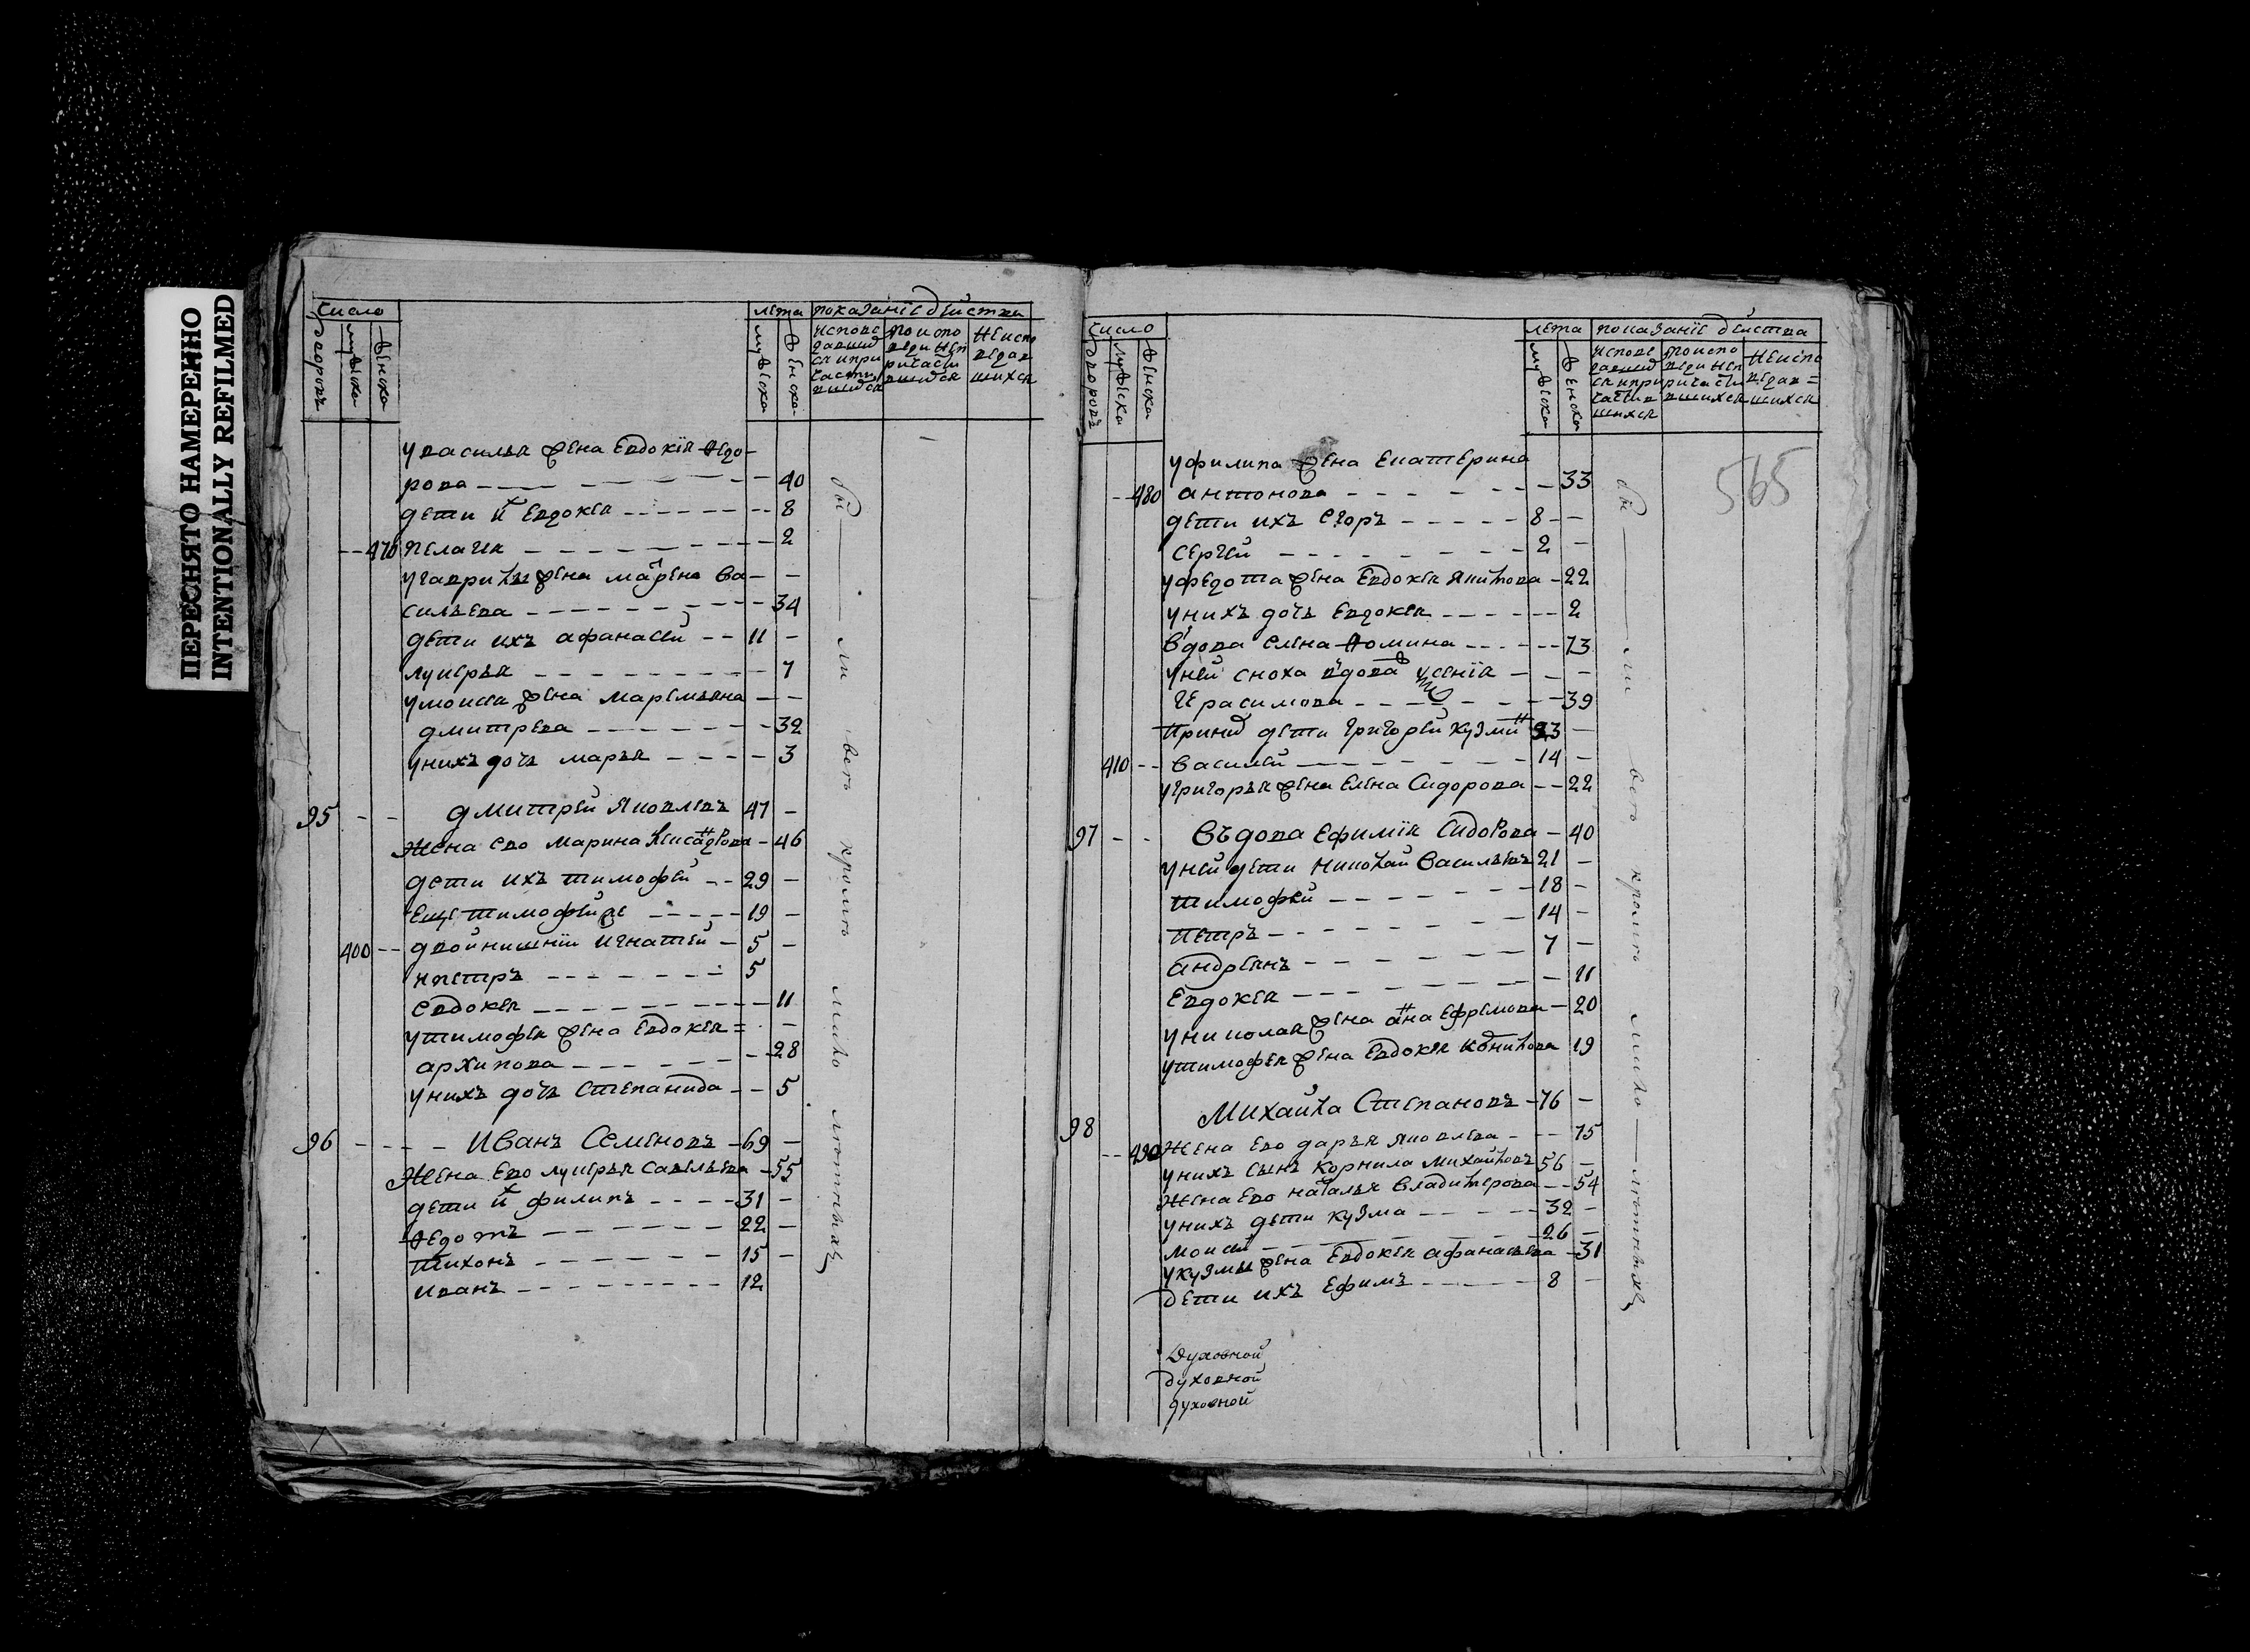 ПЕРЕСНЯТО НАМЕРЕННО
INTENTIONALLY REFILMED
число
дворовъ
мужеска
женска
лѣта
мужеска
женска
показанїе действа
исповедавшихся и причастившихся
по исповеди не причастившихся
не исповедавшихся
у василья жена Евдокїя Федо-
рова 40
дети их Евдокея 8
470 пелагия 2
у гаврилы жена марина Ва-
сильева 34
дети ихъ афанасей 11
лукерья 7
у моисея жена маремьяна
дмитрева 32
у нихъ дочь марья 3
95 дмитрей Яковлевъ 47
Жена ево марина 46
дети ихъ тимофей 29
Еще тимофей же 19
400 двойнишнïи игнатей 5
и петръ 5
евдокея 11
у тимофея жена Евдокея =
архипова 28
у нихъ дочь Степанида 5
96 Иванъ Семеновъ 69
Жена Ево лукерья савельева 55
дети их филипъ 31
Федотъ 22
тихонъ 15
иванъ 12
бы ли всѣ кромѣ мало лѣтныхъ
число
дворовъ
мужеска
женска
лѣта
мужеска
женска
показанїе действа
исповедавшихся и причастившихся
по исповеди не причастившихся
не исповедавшихся
565
у филипа жена Екатерина
480 антонова 33
дети ихъ Егоръ 8
Сергей 2
у федота жена Евдокея Яковлева 22
у нихъ дочь Евдокея 2
Вдова Елена Фомина 73
у ней сноха вдова ксенїя
Герасимова 39
При ней дети григорей кузмин 23
410 Василей 14
у григорья жена Елена Сидорова 22
97 Въдова Ефимїя Сидорова 40
у ней дети николай Васильевъ 21
тимофей 18
петръ 14
андреянъ 7
Евдокея 11
у николая жена анна Ефремова 20
у тимофея жена Евдокея 19
98 Михайла Степановъ 76
490 Жена Ево дарья Яковлева 75
у нихъ сынъ корнила михайловъ 56
Жена Ево наталья 54
у нихъ дети кузма 32
моисей 26
у кузмы жена Евдокея афанасьева 31
дети ихъ Ефимъ 8
бы ли всѣ кромѣ мало лѣтныхъ
Духовной
духовной
духовной